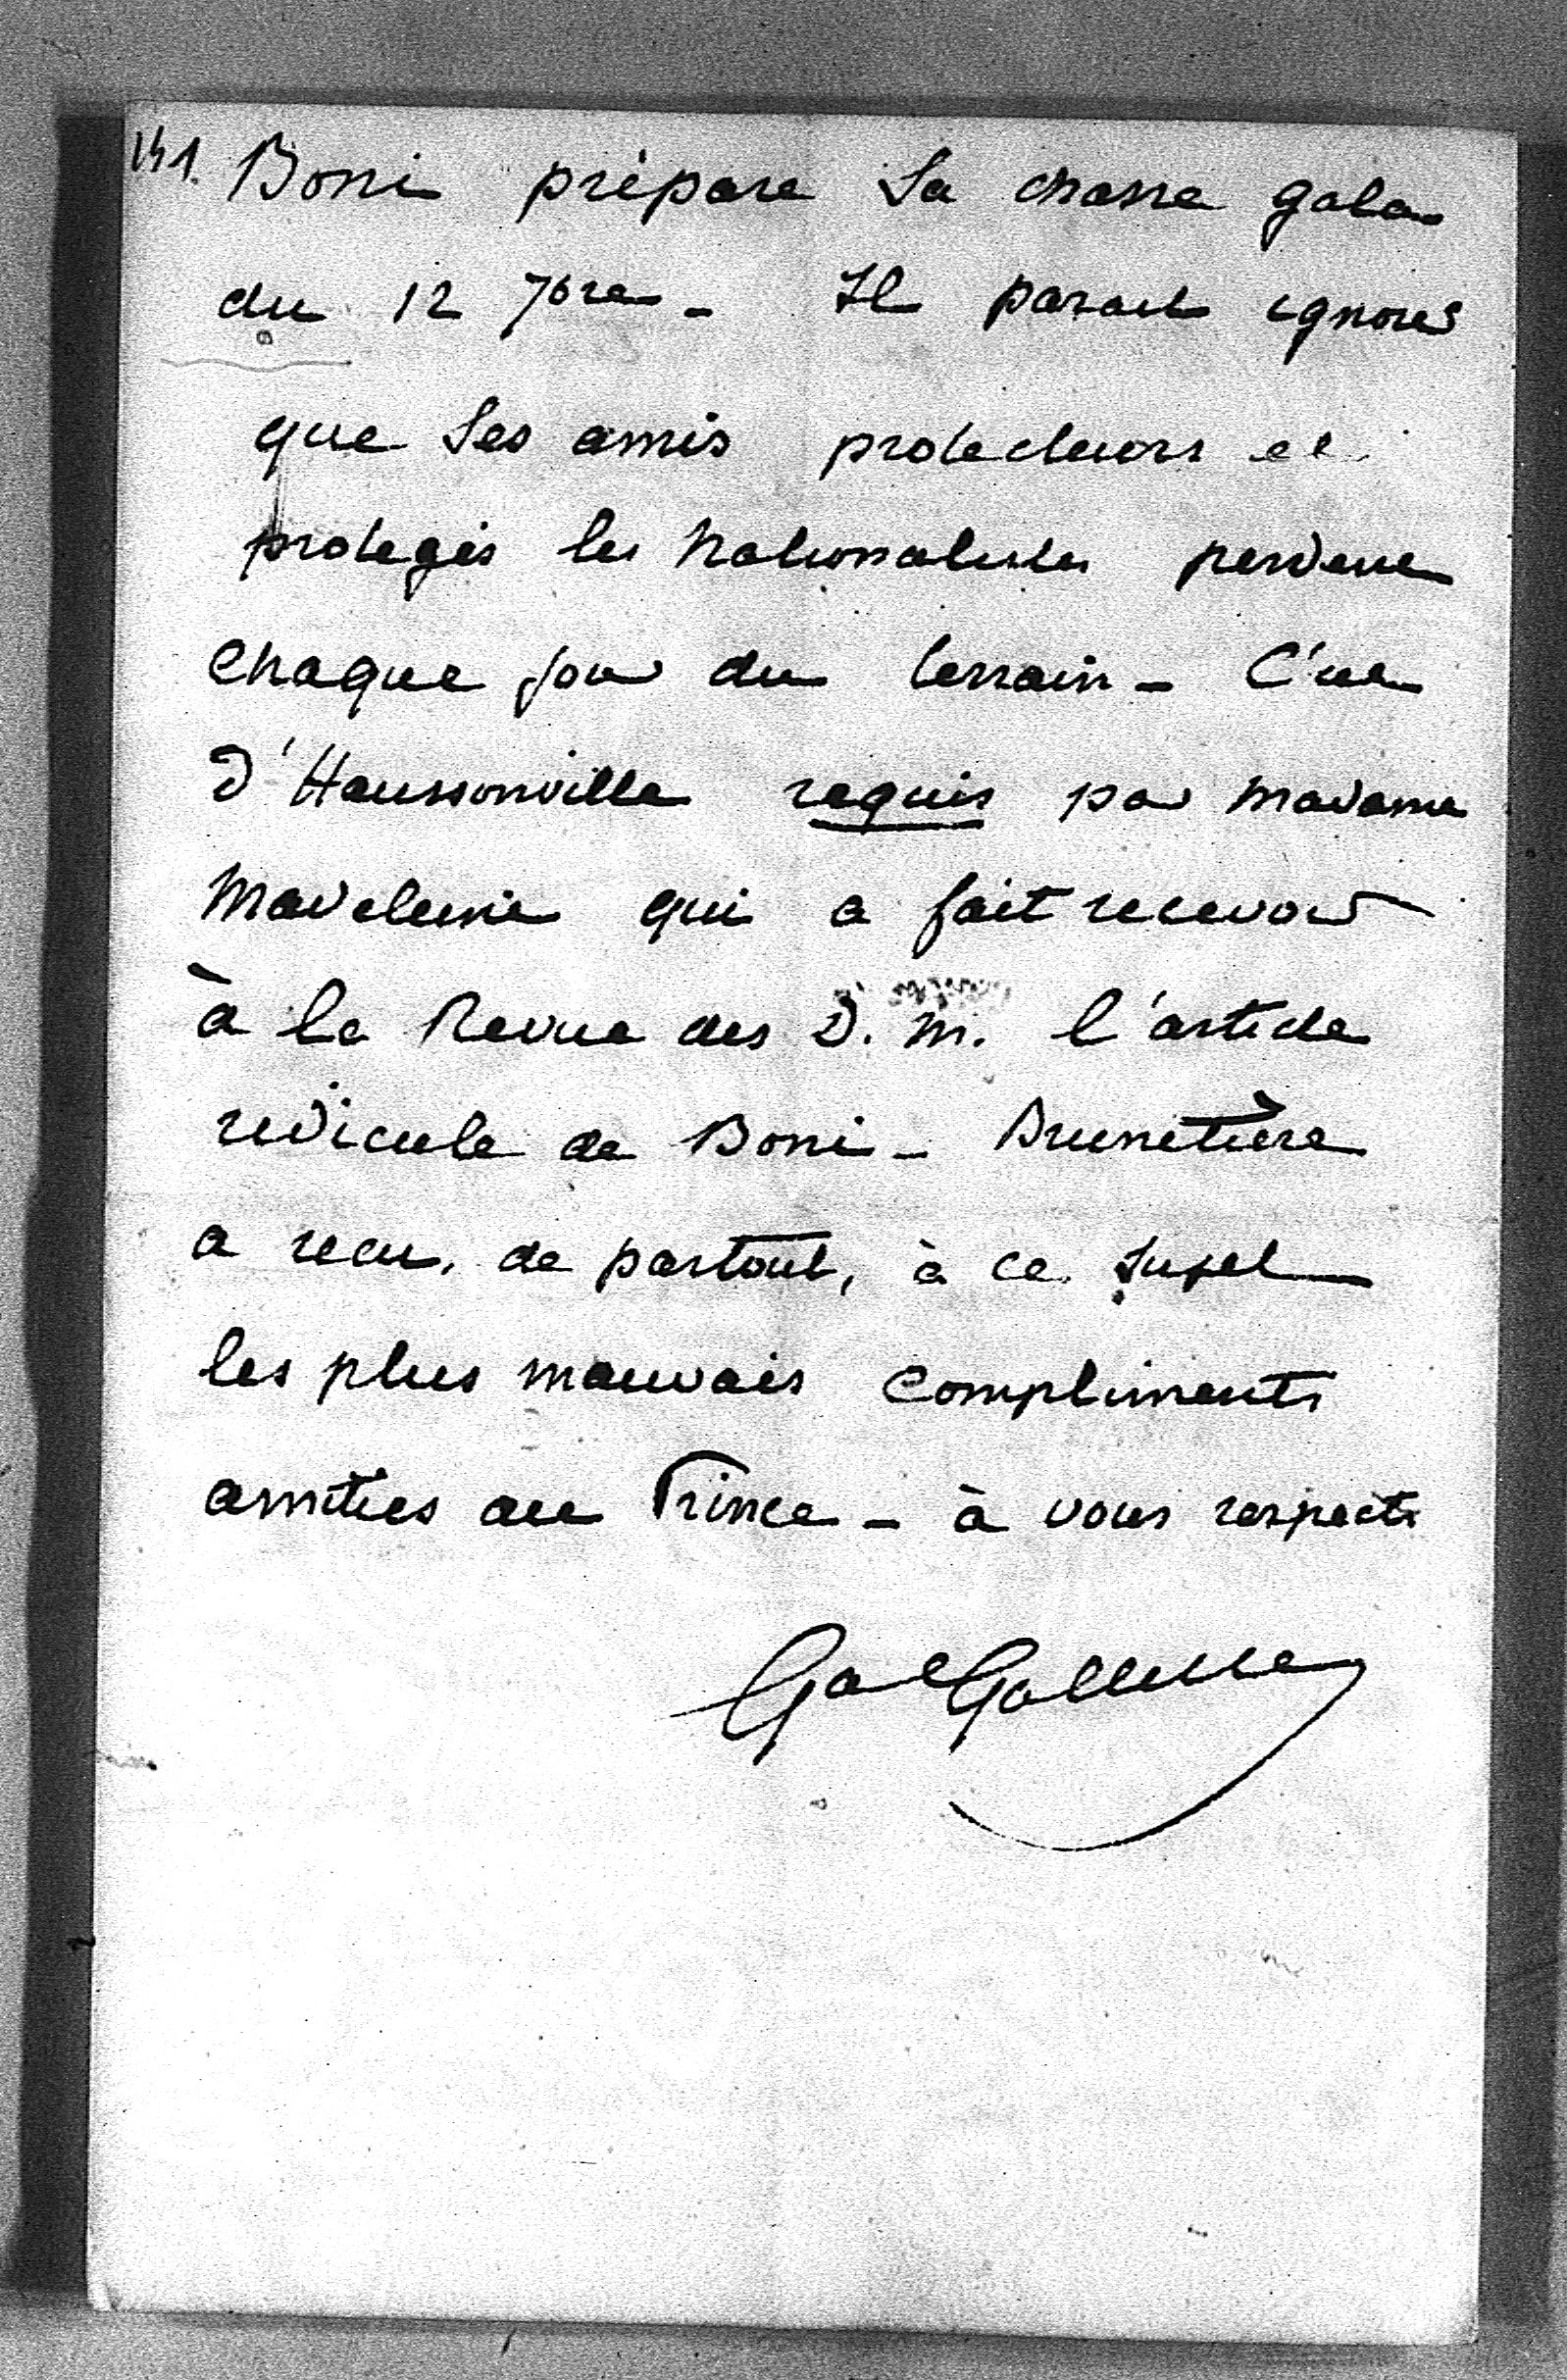 141. Boni prépare sa chasse gala
du 12 7bre - Il parait ignorer
que ses amis protecteurs et
protegés les nationalistes perdent
chaque jour du terrain - C'est
d'Haussonville requis par Madame
Madeleine qui a fait recevoir
à la Revue des D. M. l'article
ridicule de Boni - Brunetière
a recu, de partout, à ce sujet
les plus mauvais compliments
amitiés au Prince - à vous respects
Gal Galliffet